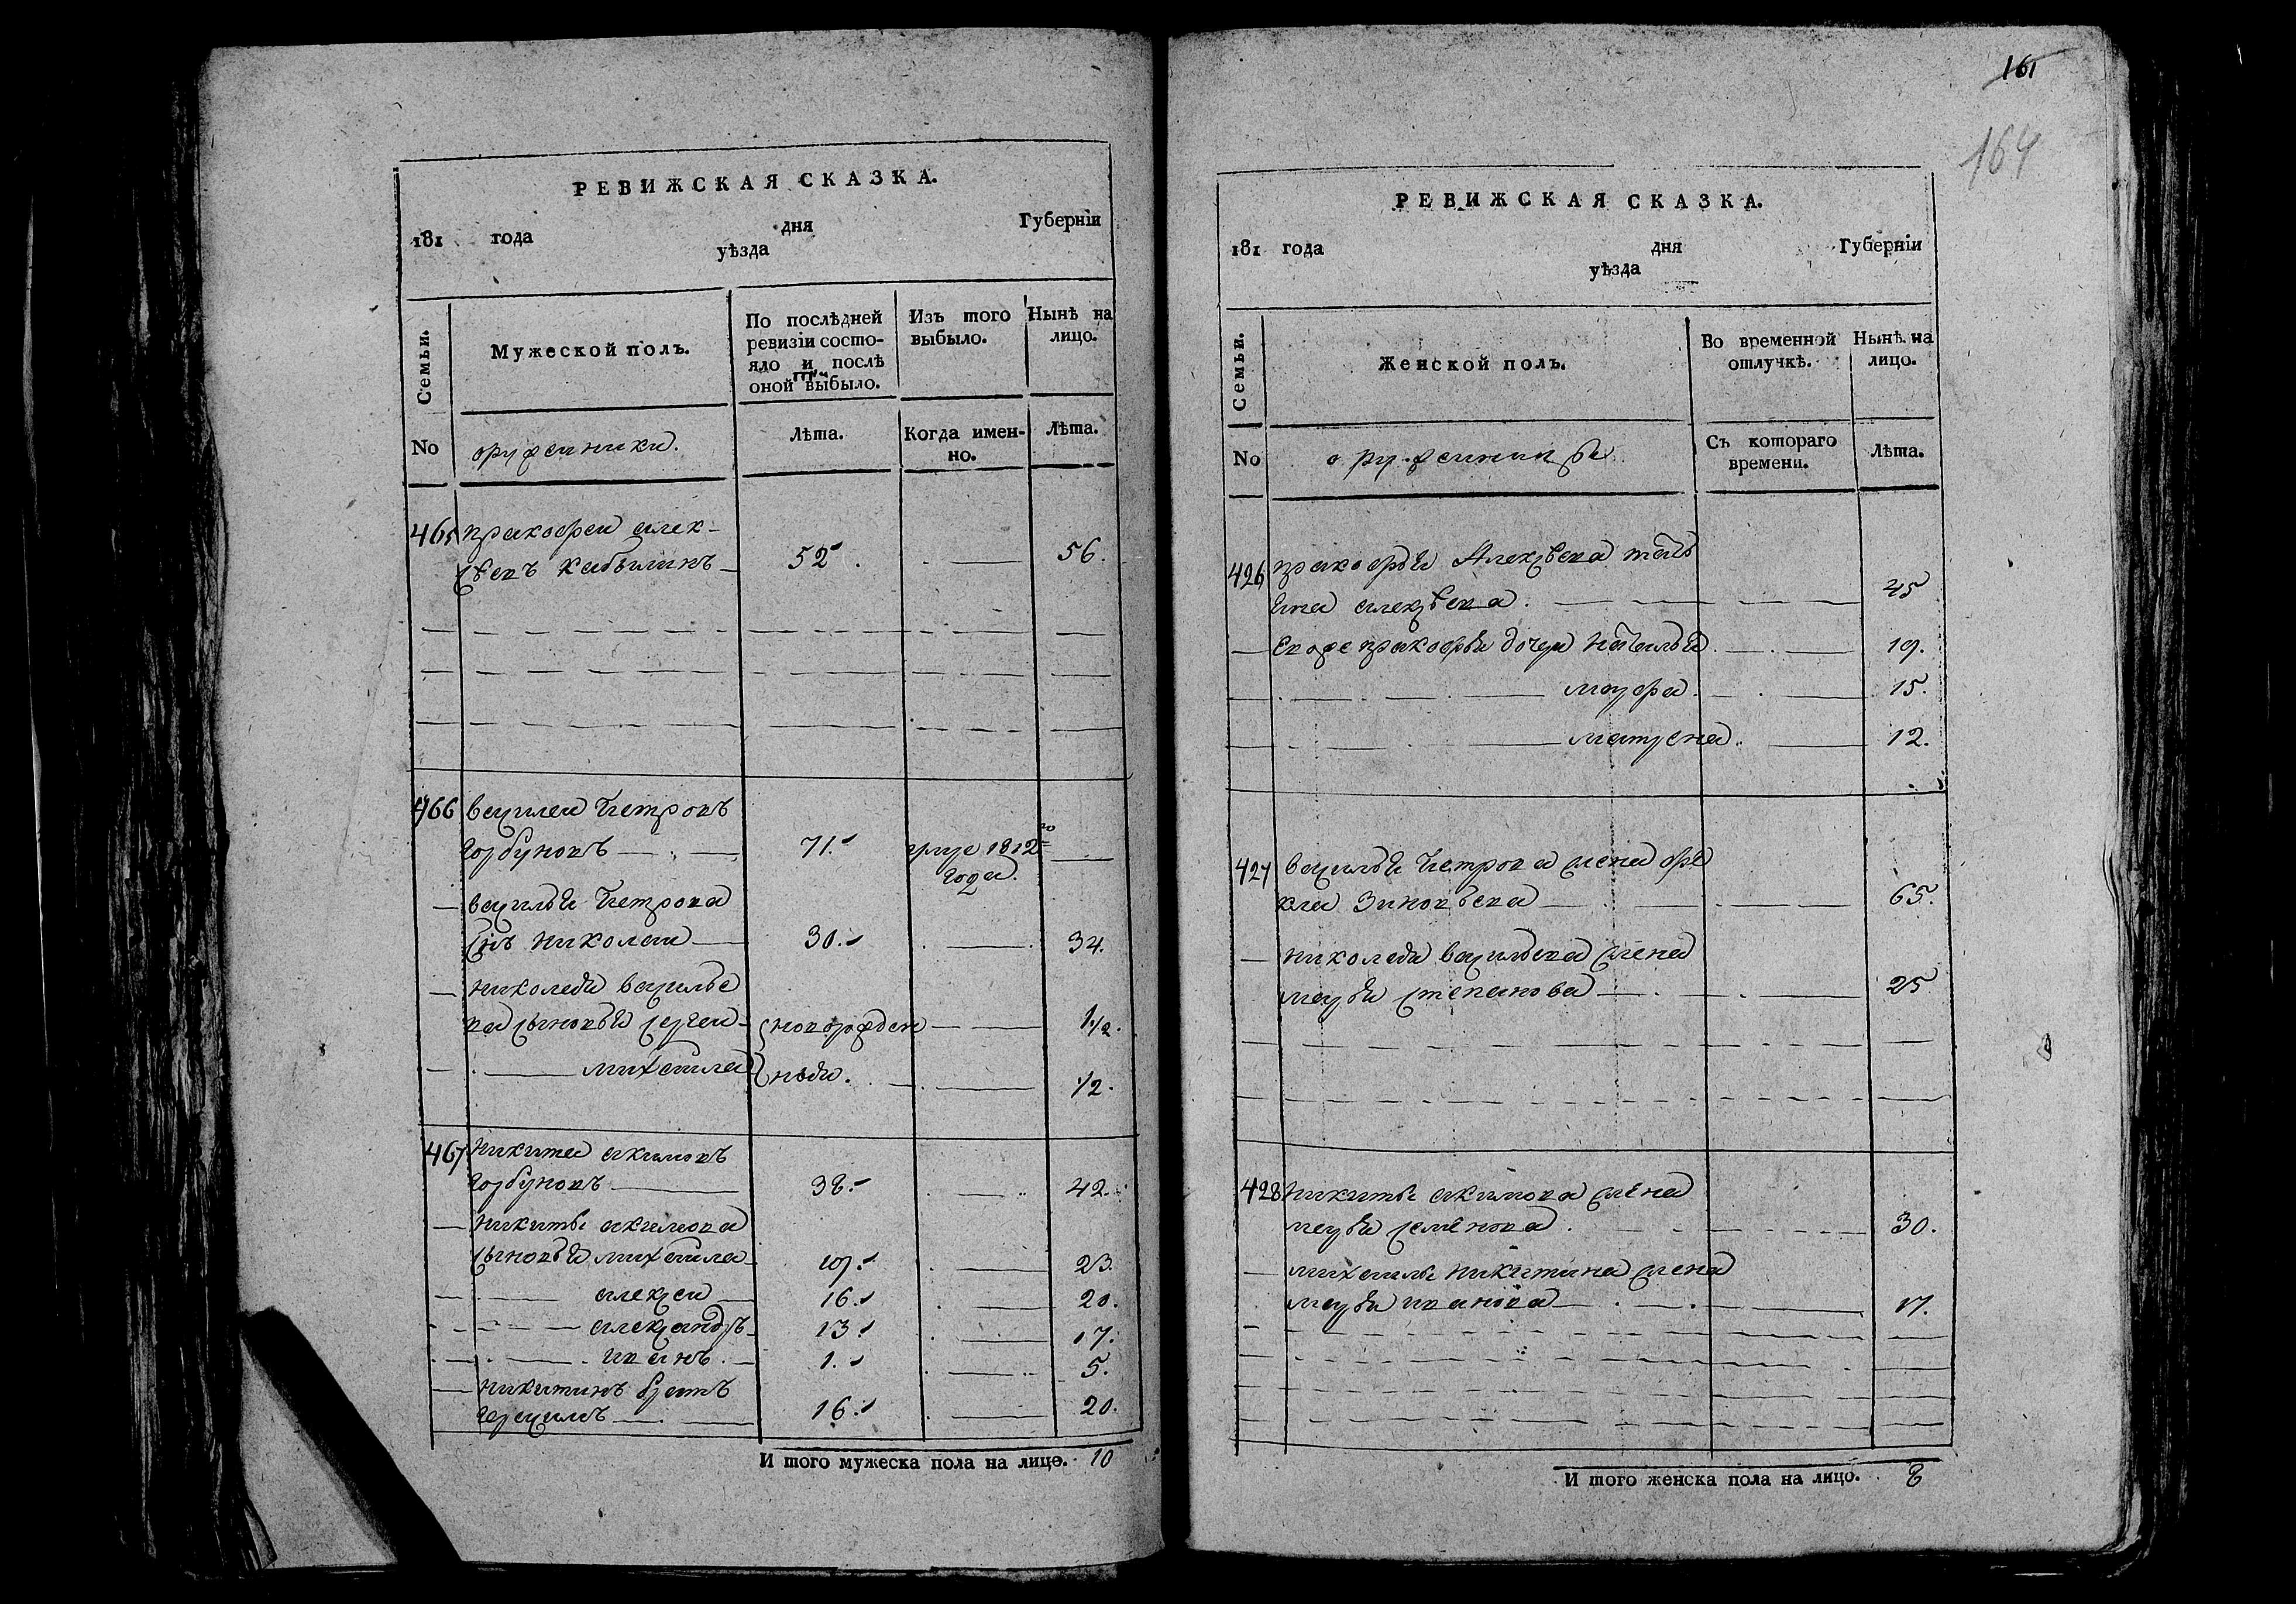 РЕВИЖСКАЯ СКАЗКА.
181 года дня Губернїи
уѣзда
Семьи.
Мужеской полъ.
По послѣдней ревизїи состо-
яло и послѣ
оной выбыло.
Изъ того выбыло.
Нынѣ на лицо.
No
оружеиники.
Лѣта.
Когда имен-
но.
Лѣта.
465 пракофеи алек-
сѣевъ кабылинъ 52. 56.
466 василеи Петровъ
горбуновъ 71. 1812го
года.
василья Петрова
снъ николаи 30. 34.
николая василье
ва сыновья сергеи новорожден 1 1/2.
михаила ныя. 1/2.
467 никита акимовъ
горбуновъ 38. 42.
никиты акимова
сыновья михаила 19. 23.
алексеи 16. 20.
александръ 13. 17.
иванъ 1. 5.
никитинъ братъ
герасимъ 16. 20.
И того мужеска пола на лицо. 10
161
164
РЕВИЖСКАЯ СКАЗКА.
181 года дня Губернїи
уѣзда
Семьи.
Женской полъ.
Во временной отлучкѣ.
Нынѣ на лицо.
No
Съ котораго времени.
Лѣта.
426 пракофья Алексѣева
алексѣева. 45
евоже пракофья дочери наталья 19.
мавра 15.
матрена 12.
427 василья Петрова жена фе
кла Зиновьева 65.
николая васильева жена
марья степанова 25
428 никиты акимова жена
марья семенова 30.
михаилы никитина жена
марья иванова 17.
И того женска пола на лицо. 8